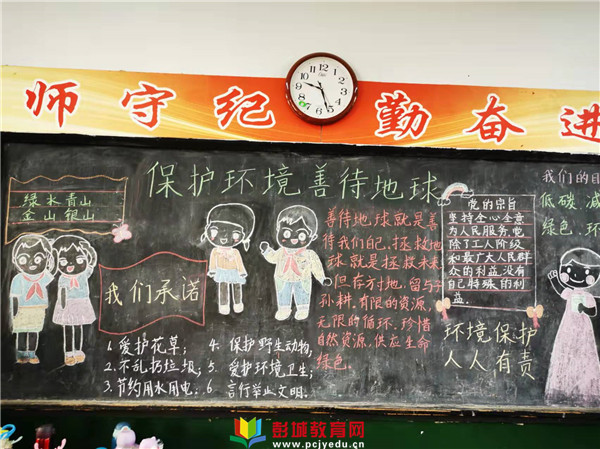 师守纪 勤奋进
保护环境善待地球
绿水青山
金山银山
我们承诺
1.爱护花草;
2.不乱扔垃圾;
3.节约用水用电;
4.保护野生动物;
5.爱护环境卫生;
6.言行举止文明.
善待地球就是善
待我们自己.拯救地
球就是拯救未来
但存方寸地,留与子
孙耕.有限的资源,
无限的循环.珍惜
自然资源,供应生命
绿色.
党的宗旨
坚持全心全意
为人民服务.党
除了工人阶级
和最广大人民群
众的利益,没有
自己特殊的利
益.
环境保护
人人有责
我们的目
低碳减
绿色.环
彭城教育网
www.pcjyedu.cn